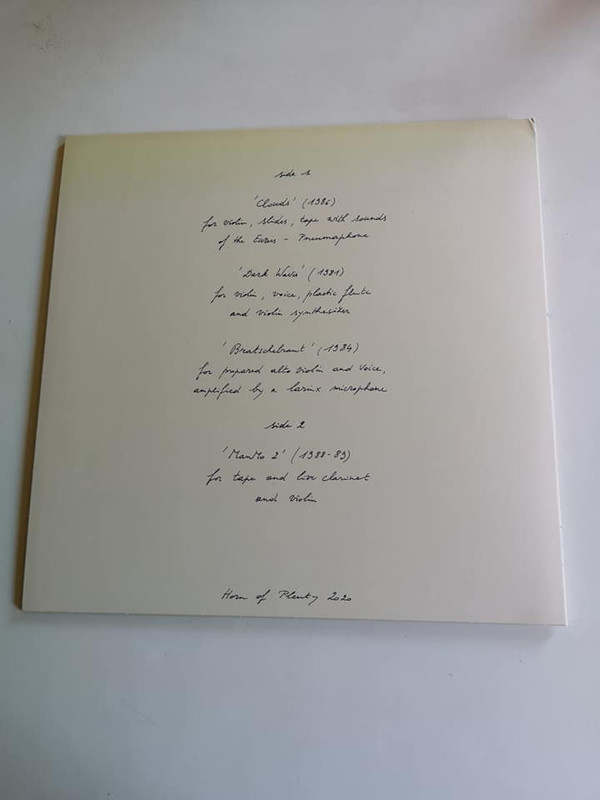 side 1
'Clouds' (1986)
for violin, slides, tape with sounds
of the Euros - Pneumaphone
'Dark Waves' (1981)
for violin, voice, plastic flute
and violin synthesizer
'Bratschebraut' (1984)
for prepared alto violin and voice,
amplified by a larinx microphone
side 2
'ManMo 2' (1988-89)
for tape and live clarinet
and violin
Horn of Plenty 2020